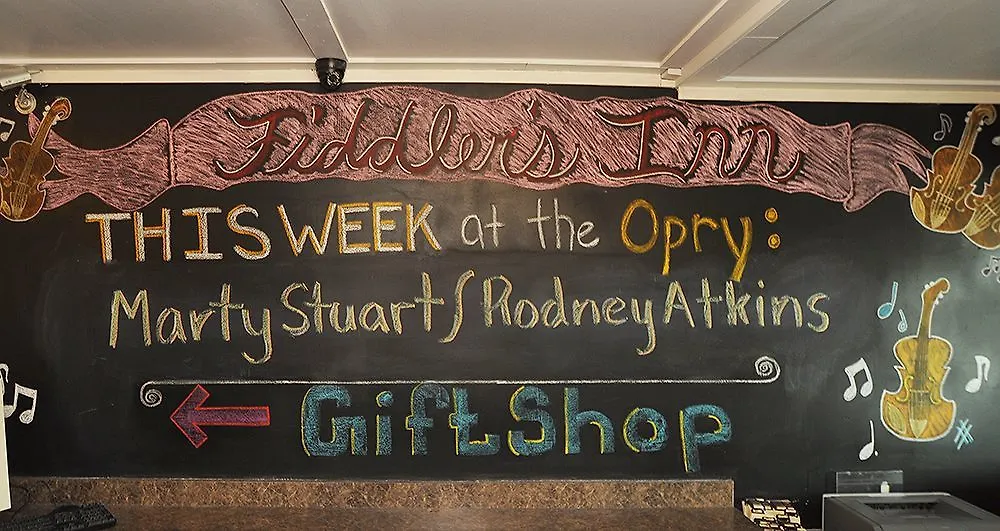 Fiddler's Inn
THIS WEEK at the Opry:
Marty Stuart/Rodney Atkins
Gift Shop